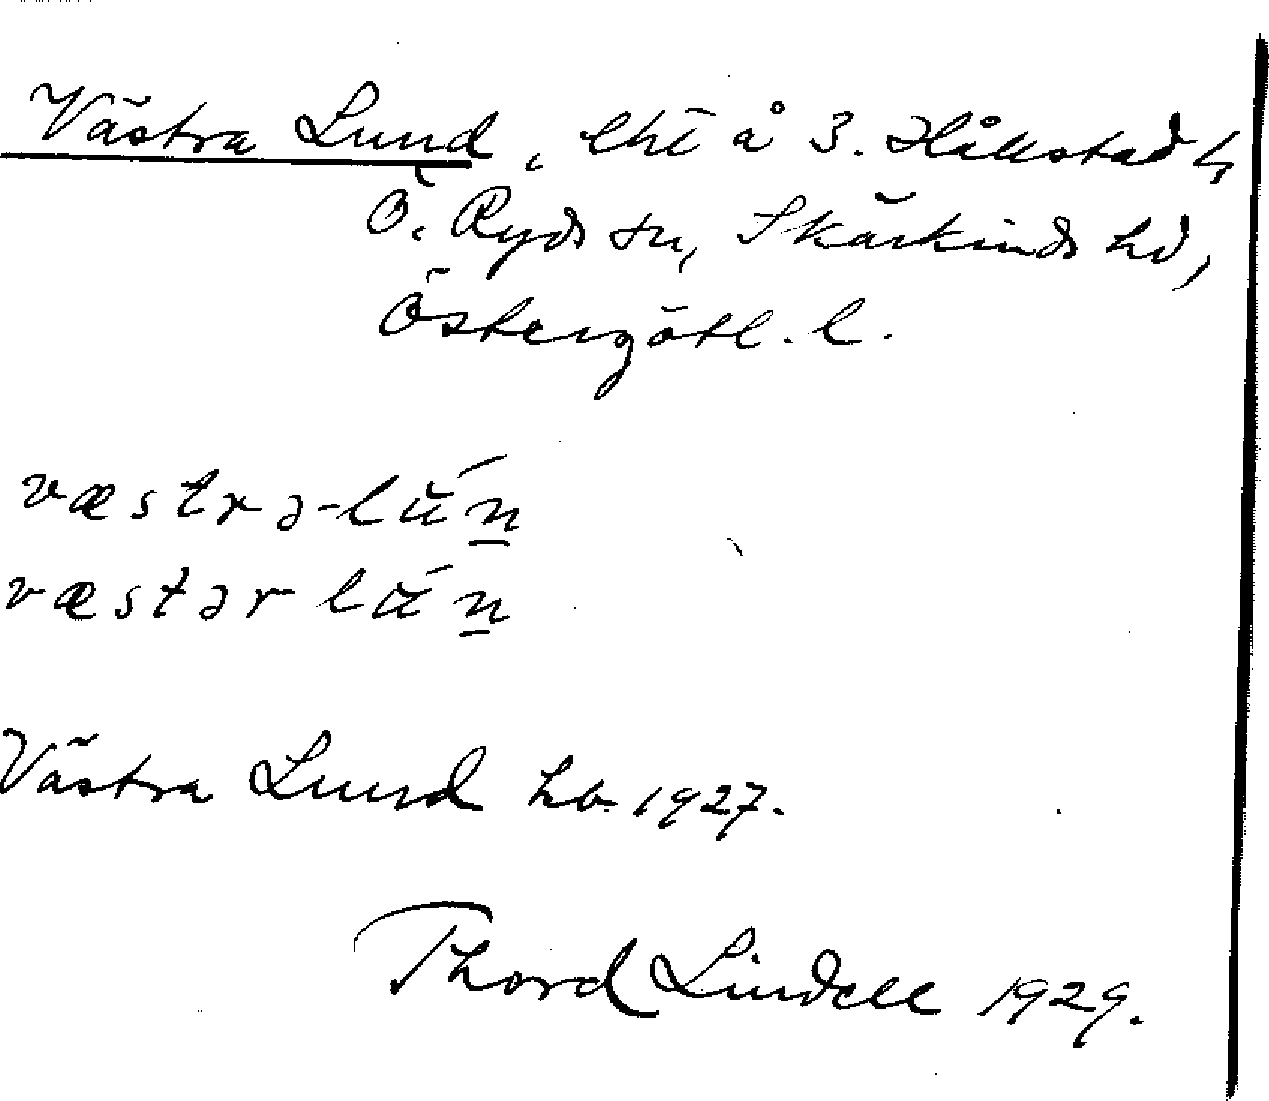 Västra Lund, lht å 3. Hållstad
Ö. Ryds sn, Skärkinds hd,
Östergötl. l.
væstrə-lún̲
væstər lún̲
Västra Lund hb 1927.
Thord Lindell 1929.